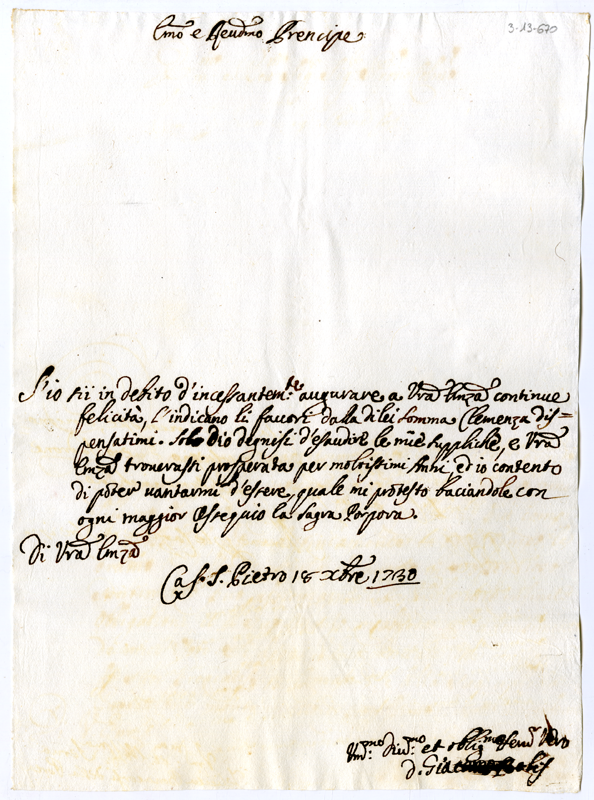 Emo e Reudmo Prencipe
3-13-670
S'io sii in debito d'incessantemte augurare a Vra Emza continue
felicità, l'indicano li fauori dalla di lei somma Clemenza dis=
pensatimi. Solo Dio degnesi d'esaudire le mie suppliche, e Vra
Emza trouerassi prosperata per moltissimi Anni, ed io contento
di poter uantarmi d'essere, quale mi protesto baciandole con
ogni maggior Ossequio la Sagra Porpora.
Di Vra Emza
S. Pietro 18 Xbre 1730
Vmmo Diumo et obligmo Serure Vero
D. Giacomo